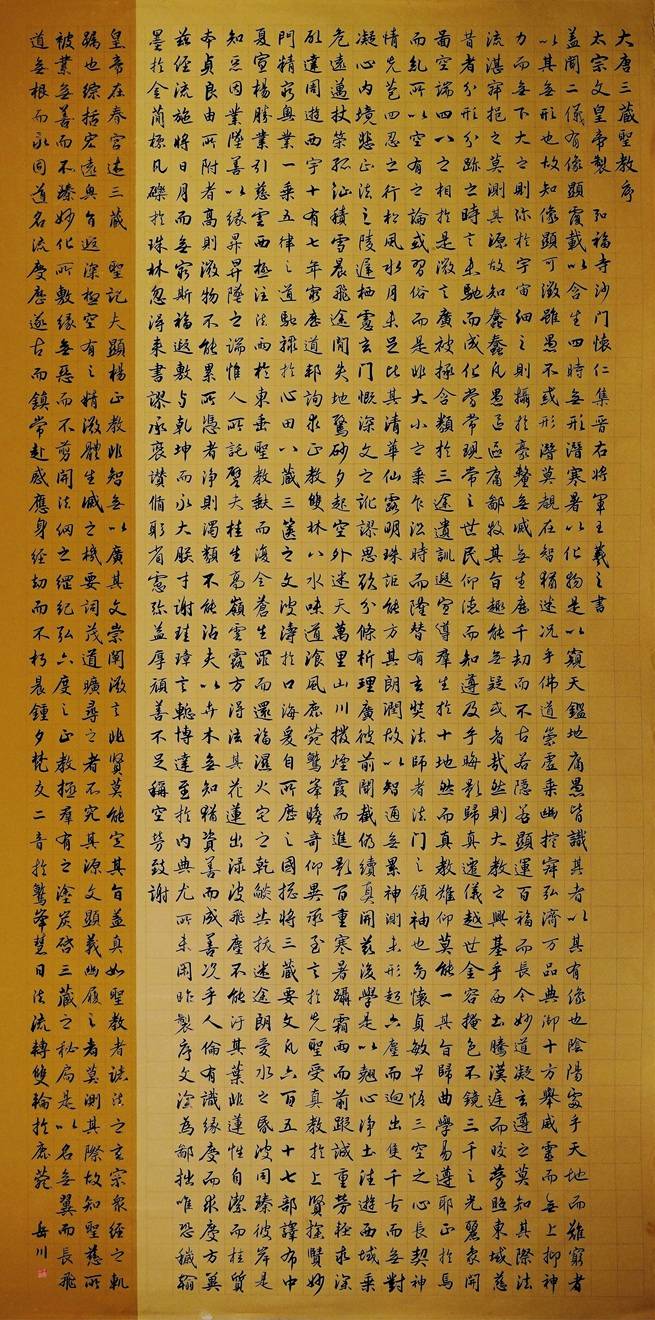 大唐三藏聖教序
太宗文皇帝製 弘福寺沙門懷仁集晉右將軍王羲之書
蓋聞二儀有像顯覆載以含生四時無形潛寒暑以化物是以窺天鑑地庸愚皆識其者以其有像也陰陽處乎天地而難窮者
以其無形也故知像顯可徵雖愚不惑形潛莫覩在智猶迷況乎佛道崇虛乘幽控寂弘濟万品典御十方舉威靈而無上抑神
力而無下大之則彌於宇宙細之則攝於豪釐無滅無生歷千劫而不古若隱若顯運百福而長今妙道凝玄遵之莫知其際法
流湛寂挹之莫測其源故知蠢蠢凡愚區區庸鄙投其旨趣能無疑或者哉然則大教之興基乎西土騰漢庭而皎夢照東域慈
昔者分形分跡之時言未馳而成化當常現常之世民仰德而知遵及乎晦影歸真遷儀越世金容掩色不鏡三千之光麗象開
圖空端四八之相於是微言廣被拯含類於三途遺訓遐宣導群生於十地然而真教難仰莫能一其旨歸曲學易遵耶正於焉
而紛糺所以空有之論或習俗而是非大小之乘乍沿時而隆替有玄奘法師者法門之領袖也幼懷貞敏早悟三空之心長契神
情先苞四忍之行松風水月未足比其清華仙露明珠詎能方其朗潤故以智通無累神測未形超六塵而迥出隻千古而無對
凝心內境悲正法之陵遲栖慮玄門慨深文之訛謬思欲分條析理廣彼前聞截偽續真開茲後學是以翹心淨土法遊西域乘
危遠邁杖策孤征積雪晨飛途閒失地驚砂夕起空外迷天萬里山川撥煙霞而進影百重寒暑躡霜雨而前蹤誠重勞輕求深
願達周遊西宇十有七年窮歷道邦詢求正教雙林八水味道飡風鹿菀鷲峯瞻奇仰異承至言於先聖受真教於上賢探賾妙
門精窮奧業一乘五律之道馳驟於心田八藏三篋之文波濤於口海爰自所歷之國總將三藏要文凡六百五十七部譯布中
夏宣揚勝業引慈雲西極注法雨於東垂聖教缺而復全蒼生罪而還福濕火宅之乾燄共拔迷途朗愛水之昏波同臻彼岸是
知惡因業墜善以緣昇昇墜之端惟人所託譬夫桂生高嶺雲露方得泫其花蓮出淥波飛塵不能汙其葉非蓮性自潔而桂質
本貞良由所附者高則微物不能累所憑者淨則濁類不能沾夫以卉木無知猶資善而成善況乎人倫有識緣慶而求慶方冀
茲經流施將日月而無窮斯福遐敷與乾坤而永大朕才謝珪璋言慚博達至於內典尤所未閑昨製序文深為鄙拙唯恐穢翰
墨於金簡標瓦礫於珠林忽得來書謬承褒讚循躬省慮彌益厚顏善不足稱空勞致謝
皇帝在春宮述三藏 聖記夫顯揚正教非智無以廣其文崇闡微言非賢莫能定其旨蓋真如聖教者諸法之玄宗眾經之軌
躅也綜括宏遠奧旨遐深極空有之精微體生滅之機要詞茂道曠尋之者不究其源文顯義幽履之者莫測其際故知聖慈所
被業無善而不臻妙化所敷緣無惡而不剪開法網之綱紀弘六度之正教拯群有之塗炭啟三藏之秘扃是以名無翼而長飛
道無根而永固道名流慶歷遂古而鎮常赴感應身經劫而不朽晨鍾夕梵交二音於鷲峯慧日法流轉雙輪於鹿菀 岳川